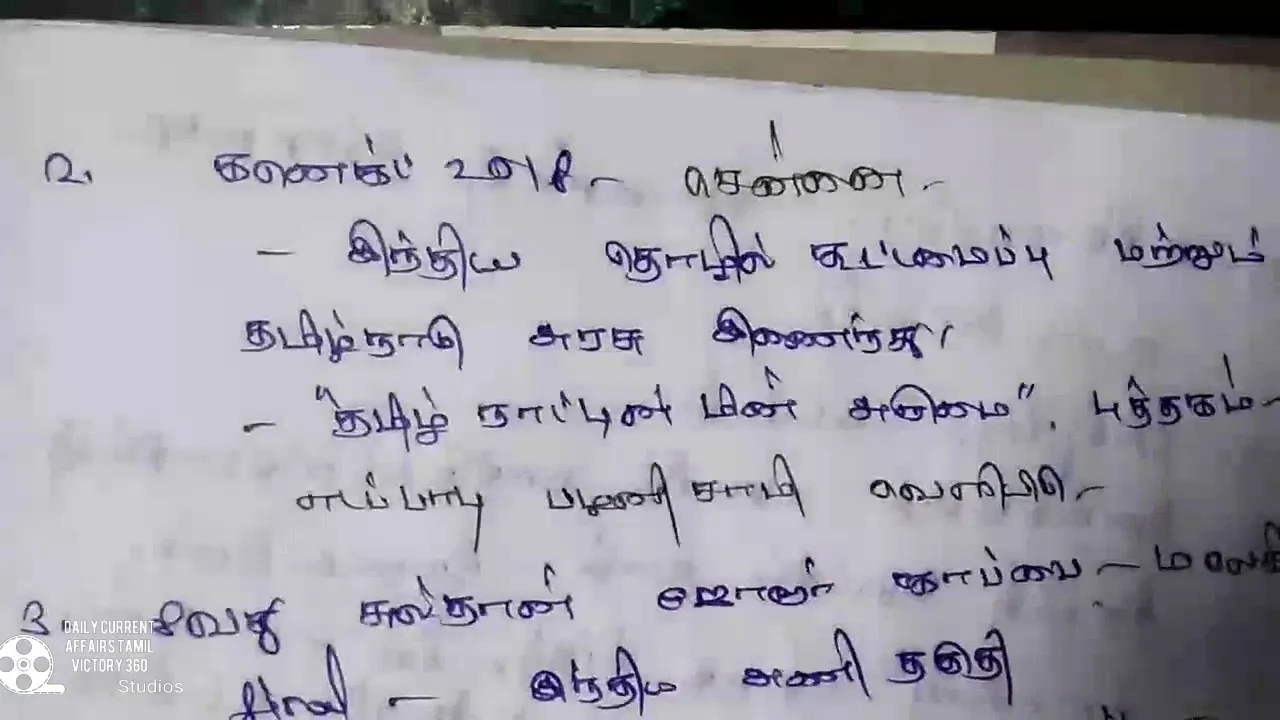 2. கனெக்ட் 2018 - சென்னை -
- இந்திய தொழில் கூட்டமைப்பு மற்றும்
தமிழ்நாடு அரசு இணைந்து
- "தமிழ் நாட்டின் மின் ஆளுமை". புத்தகம் -
எடப்பாடி பழனிசாமி வெளியீடு -
3. சுல்தான் ஜொகூர் கோப்பை -
- இந்திய அணி தகுதி
DAILY CURRENT
AFFAIRS TAMIL
VICTORY 360
Studios